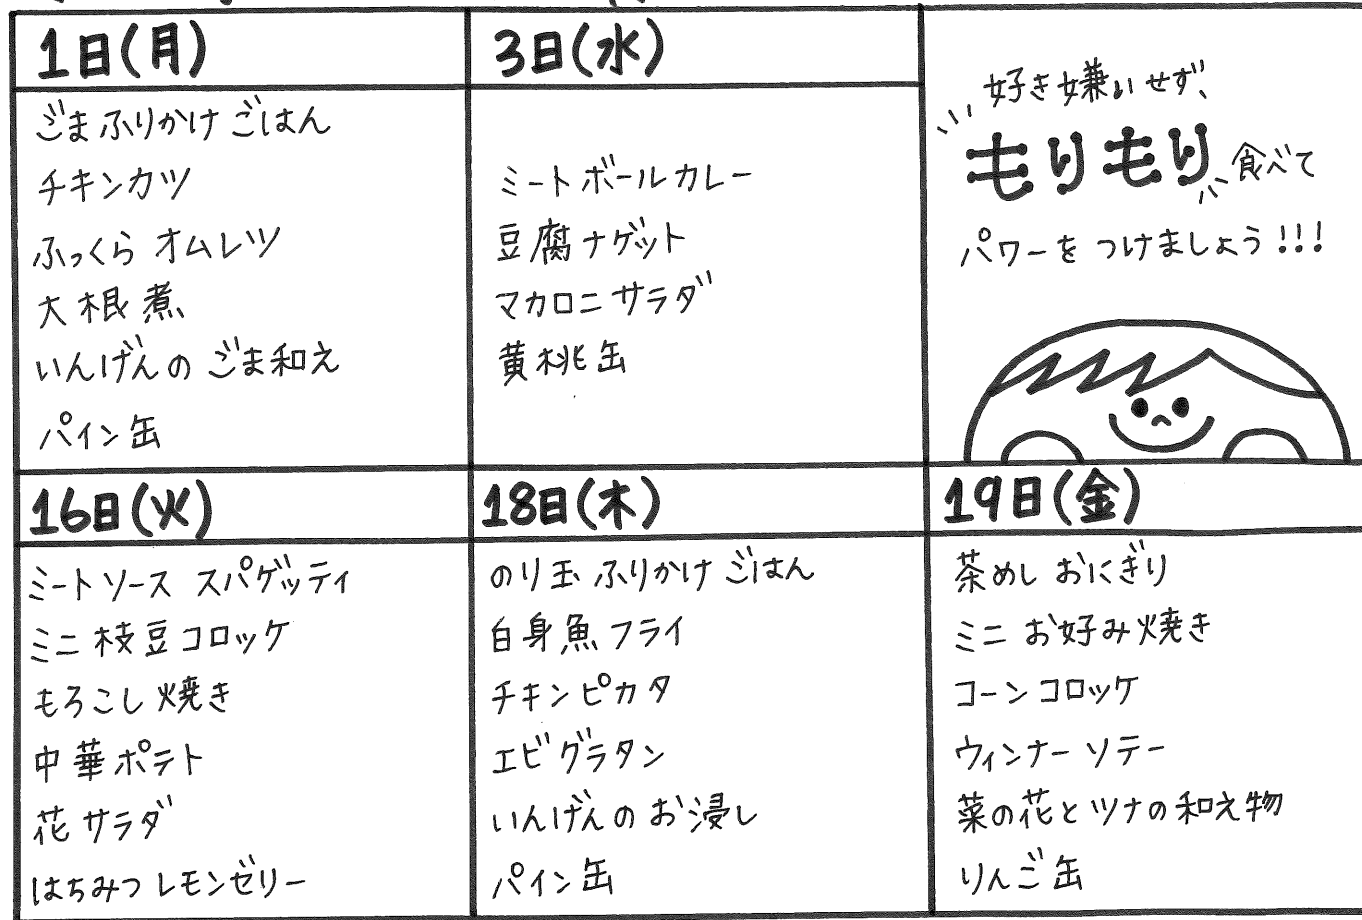 1日(月)
ごまふりかけ ごはん
チキンカツ
ふっくら オムレツ
大根煮
いんげんの ごま和え
パイン缶
3日(水)
ミートボールカレー
豆腐ナゲット
マカロニサラダ
黄桃缶
好き嫌いせず、
もりもり 食べて
パワーを つけましょう!!!
16日(火)
ミートソース スパゲッティ
ミニ 枝豆コロッケ
もろこし焼き
中華ポテト
花サラダ
はちみつレモンゼリー
18日(木)
のり玉 ふりかけ ごはん
白身魚フライ
チキンピカタ
エビグラタン
いんげんの お浸し
パイン缶
19日(金)
茶めし おにぎり
ミニ お好み焼き
コーンコロッケ
ウィンナーソテー
菜の花とツナの和え物
りんご缶